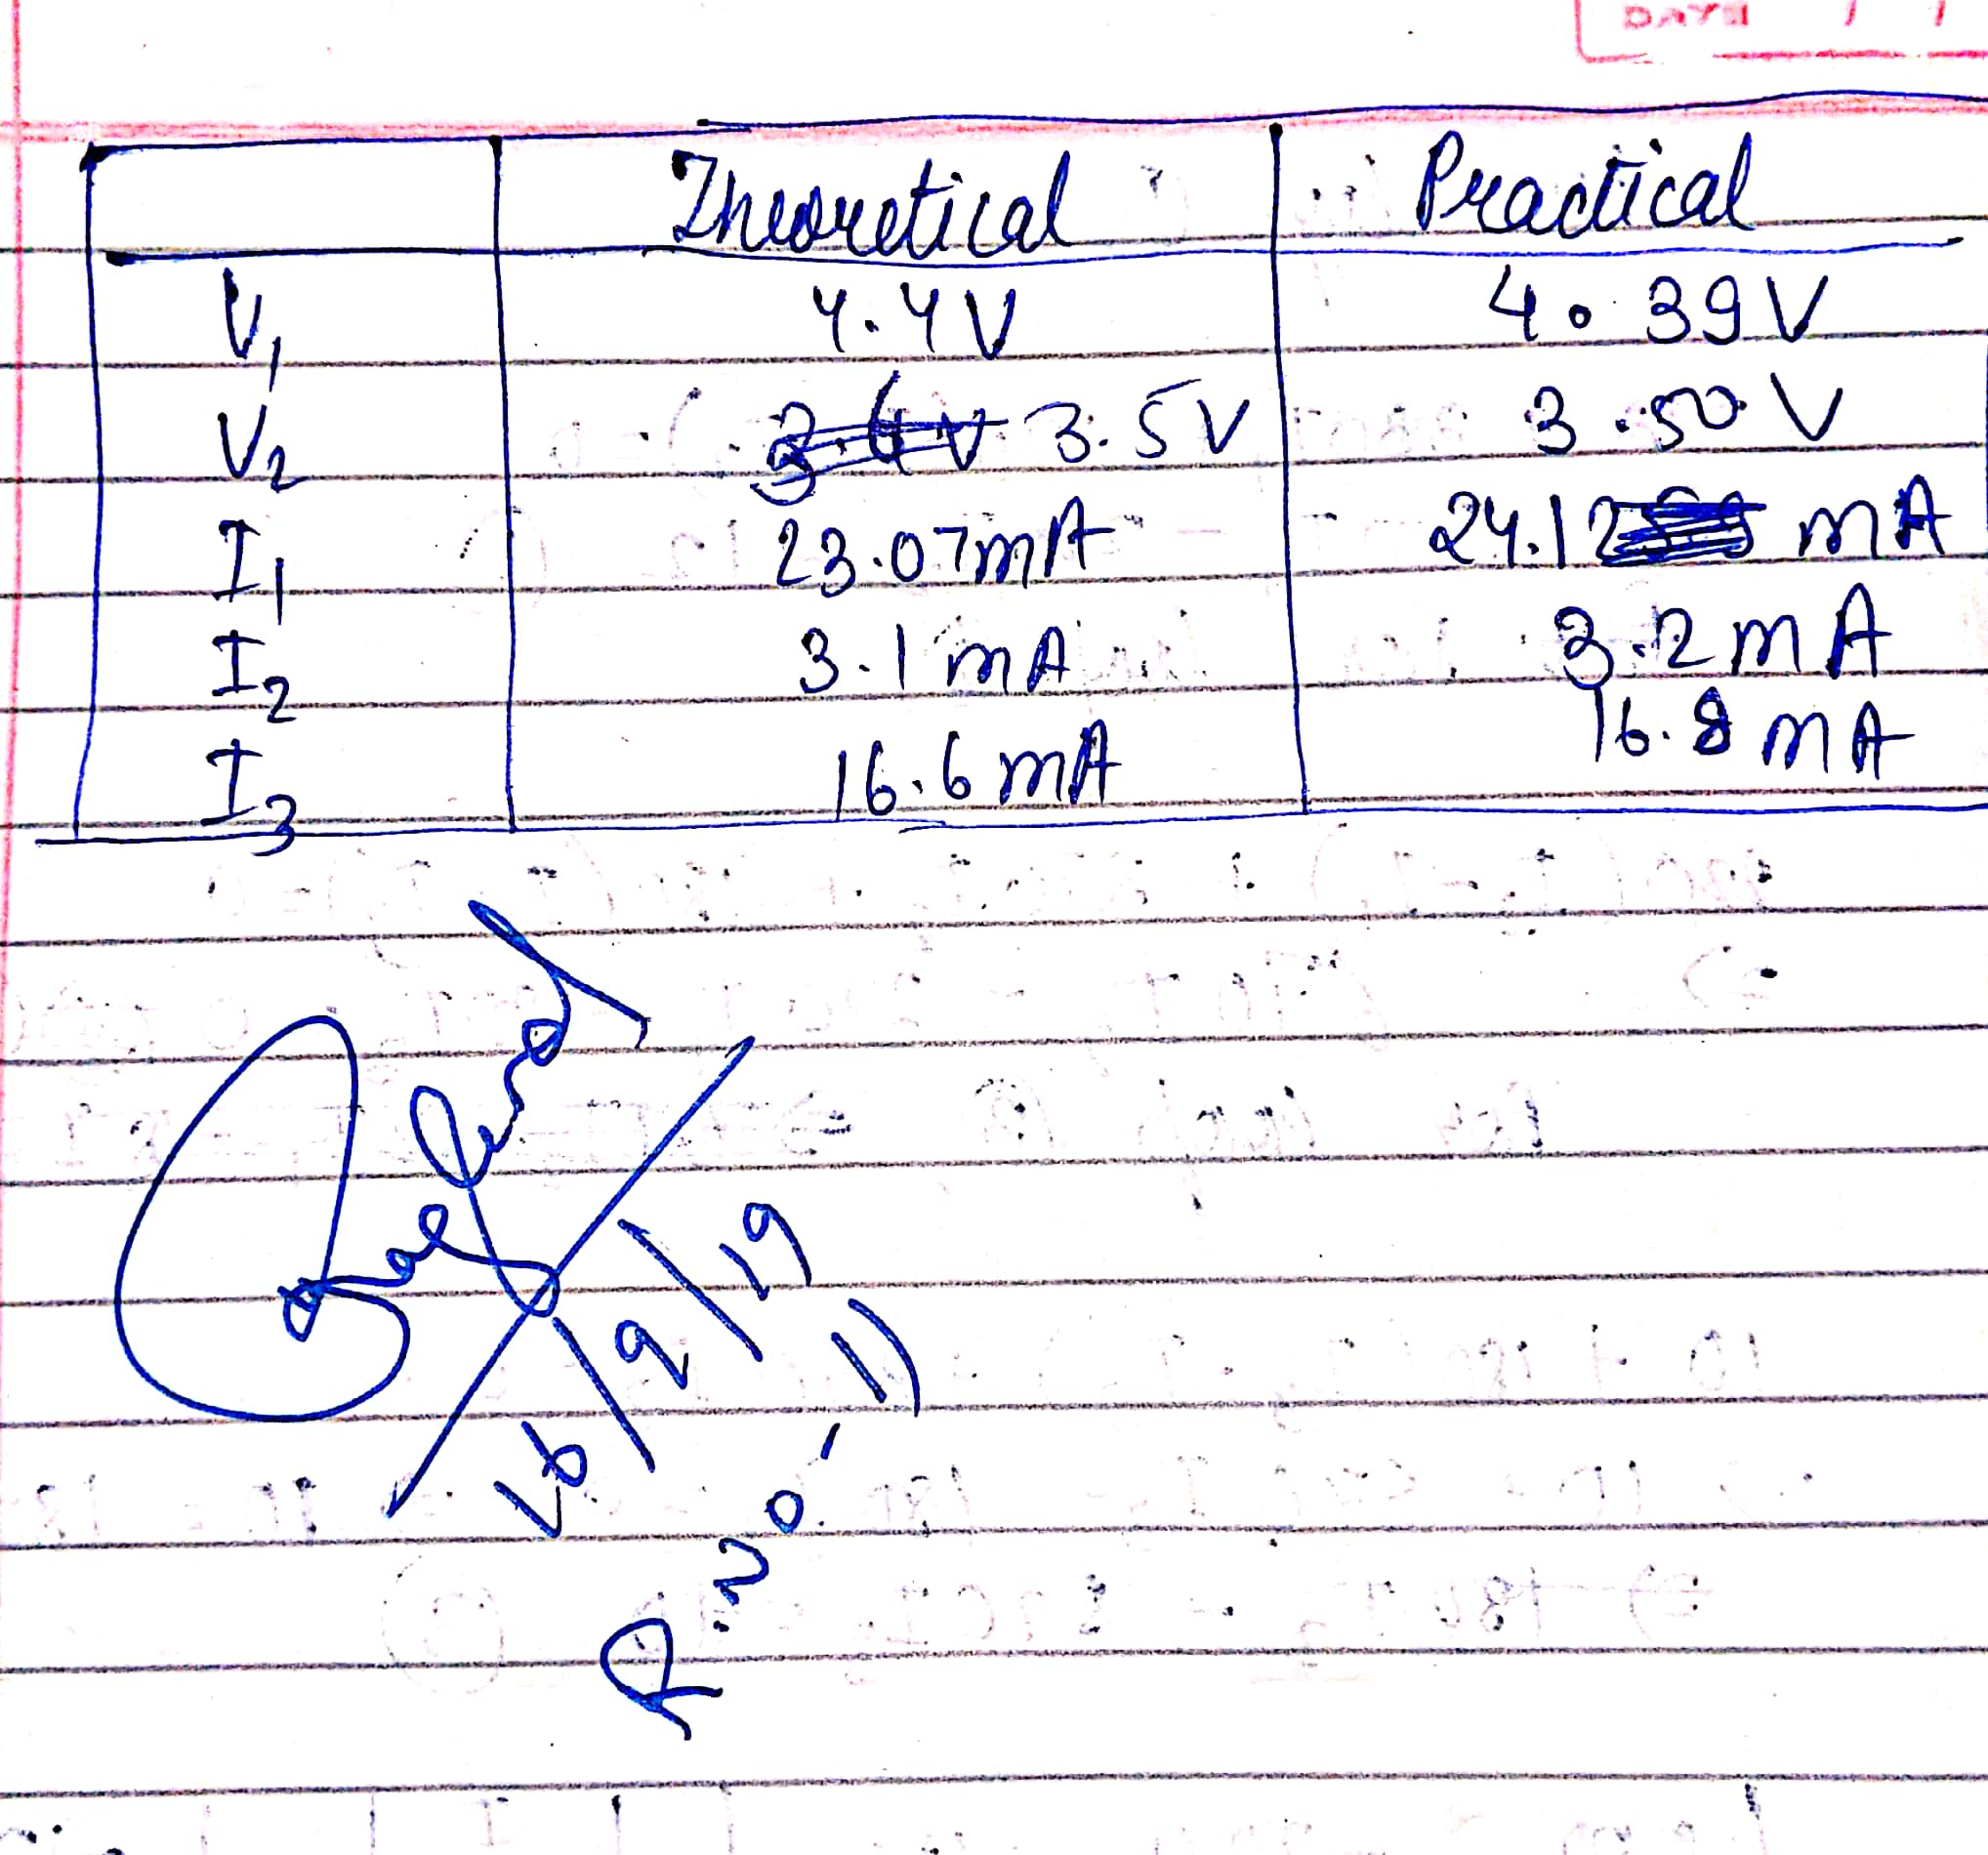 DATE / /
Theoretical Practical
V1 4.4V 4.39V
V2 3.5V 3.50V
I1 23.07mA 24.12 mA
I2 3.1 mA 3.2mA
I3 16.6mA 16.8mA
16/9/19